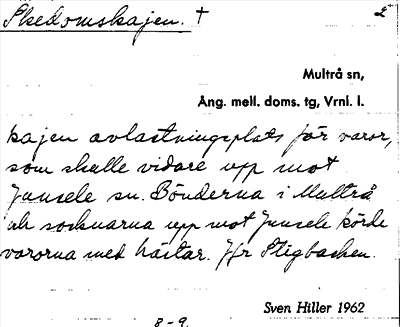 Skedomskajen. †
2
Multrå sn,
Ång. mell. doms. tg, Vrnl. l.
kajen avlastningsplats för varor,
som skulle vidare upp mot
Junsele sn. Bönderna i Multrå
och socknarna upp mot Junsele körde
varorna med hästar. Jfr Stigbacken.
Sven Hiller 1962
8-9.